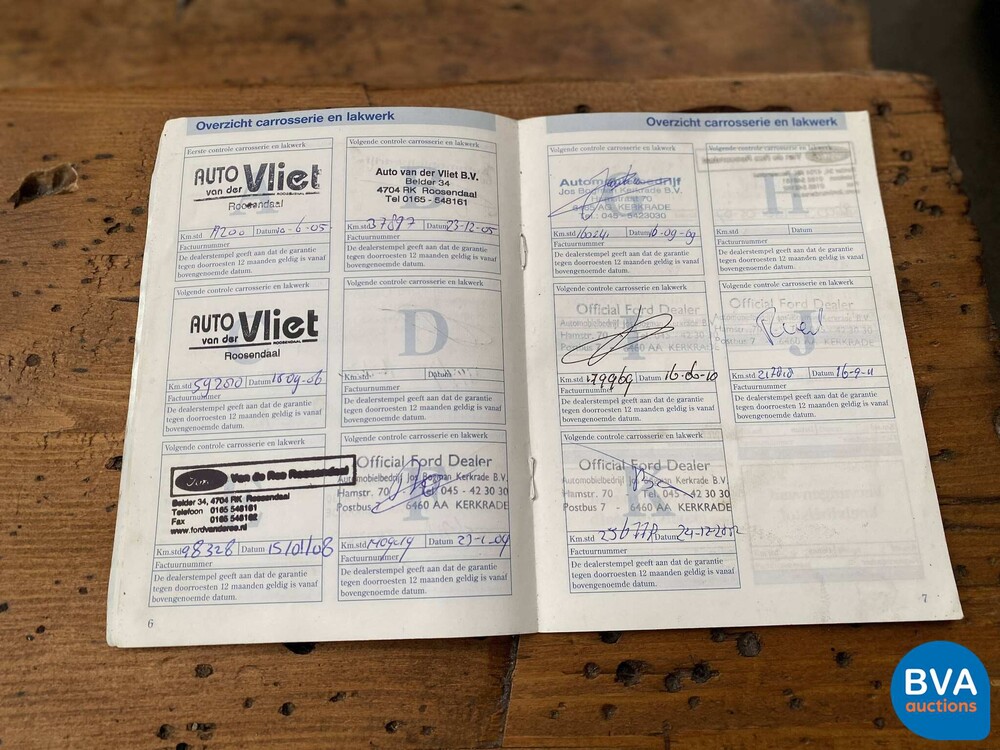 Overzicht carrosserie en lakwerk
Eerste controle carrosserie en lakwerk
AUTO
van der Vliet
ROOSENDAAL
Roosendaal
A
Km.std Datum 10-6-05
Factuurnummer
De dealerstempel geeft aan dat de garantie
tegen doorroesten 12 maanden geldig is vanaf
bovengenoemde datum.
Volgende controle carrosserie en lakwerk
Auto van der Vliet B.V.
Belder 34
4704 RK Roosendaal
Tel 0165 - 548161
Km.std 37897 Datum 23-12-05
Factuurnummer
De dealerstempel geeft aan dat de garantie
tegen doorroesten 12 maanden geldig is vanaf
bovengenoemde datum.
Volgende controle carrosserie en lakwerk
AUTO
van der Vliet
ROOSENDAAL
Roosendaal
Km.std 59200 Datum 18 09-06
Factuurnummer
De dealerstempel geeft aan dat de garantie
tegen doorroesten 12 maanden geldig is vanaf
bovengenoemde datum.
Volgende controle carrosserie en lakwerk
D
Km.std Datum
Factuurnummer
De dealerstempel geeft aan dat de garantie
tegen doorroesten 12 maanden geldig is vanaf
bovengenoemde datum.
Volgende controle carrosserie en lakwerk
Van de Ree Roosendaal
Belder 34, 4704 RK Roosendaal
Telefoon 0165 548161
Fax 0165 548162
www.fordvanderee.nl
Km.std 98328 Datum 15/01/08
Factuurnummer
De dealerstempel geeft aan dat de garantie
tegen doorroesten 12 maanden geldig is vanaf
bovengenoemde datum.
Volgende controle carrosserie en lakwerk
F
Official Ford Dealer
Automobielbedrijf Jos Bogman Kerkrade B.V.
Hamstr. 70 Tel. 045 - 42 30 30
Postbus 7 - 6460 AA KERKRADE
Km.std Datum
Factuurnummer
De dealerstempel geeft aan dat de garantie
tegen doorroesten 12 maanden geldig is vanaf
bovengenoemde datum.
6
Overzicht carrosserie en lakwerk
Volgende controle carrosserie en lakwerk
Automobielbedrijf
Jos Bogman Kerkrade B.V.
Hamstraat 70
6465 AG KERKRADE
Tel.: 045 - 5423030
Km.std Datum 16-09-09
Factuurnummer
De dealerstempel geeft aan dat de garantie
tegen doorroesten 12 maanden geldig is vanaf
bovengenoemde datum.
Volgende controle carrosserie en lakwerk
H
Km.std Datum
Factuurnummer
De dealerstempel geeft aan dat de garantie
tegen doorroesten 12 maanden geldig is vanaf
bovengenoemde datum.
Volgende controle carrosserie en lakwerk
Official Ford Dealer
Automobielbedrijf Jos Bogman Kerkrade B.V.
Hamstr. 70
Postbus 7 - 6460 AA KERKRADE
Km.std 179969 Datum 16-06-10
Factuurnummer
De dealerstempel geeft aan dat de garantie
tegen doorroesten 12 maanden geldig is vanaf
bovengenoemde datum.
Volgende controle carrosserie en lakwerk
J
Official Ford Dealer
Automobielbedrijf Jos Bogman Kerkrade B.V.
Hamstr. 70 Tel. 045 - 42 30 30
Postbus 7 - 6460 AA KERKRADE
Km.std Datum 16-9-11
Factuurnummer
De dealerstempel geeft aan dat de garantie
tegen doorroesten 12 maanden geldig is vanaf
bovengenoemde datum.
Volgende controle carrosserie en lakwerk
K
Official Ford Dealer
Automobielbedrijf Jos Bogman Kerkrade B.V.
Hamstr. 70 Tel. 045 - 42 30 30
Postbus 7 - 6460 AA KERKRADE
Km.std Datum 24-12-2012
Factuurnummer
De dealerstempel geeft aan dat de garantie
tegen doorroesten 12 maanden geldig is vanaf
bovengenoemde datum.
7
BVA
auctions